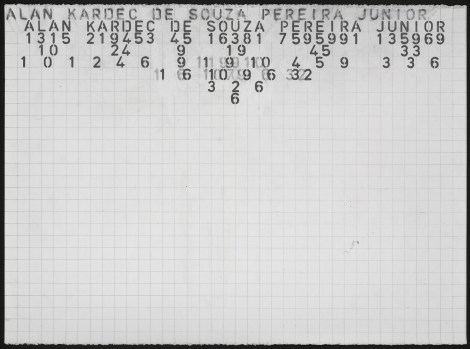 ALAN KARDEC DE SOUZA PEREIRA JUNIOR
ALAN KARDEC DE SOUZA PEREIRA JUNIOR
1315 219453 45 16381 7595991 135969
10 24 9 19 45 33
1 0 1 2 4 6 9 11 9 10 4 5 9 3 3 6
1 6 10 9 6 32
3 2 6
6